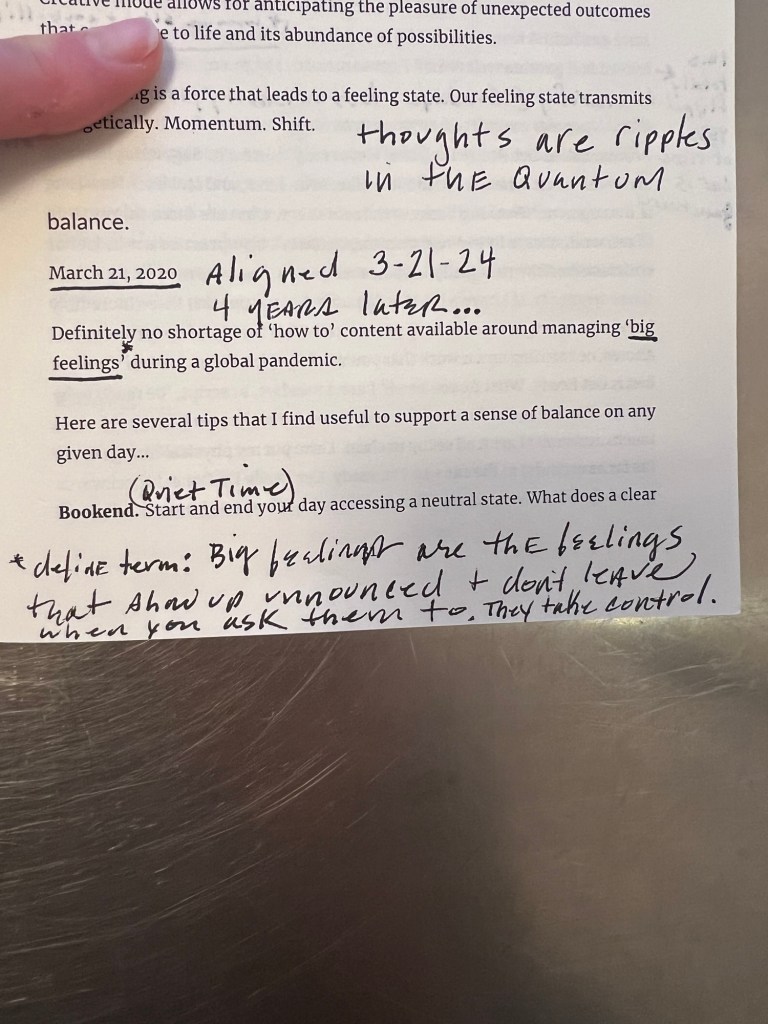 Creative mode allows for anticipating the pleasure of unexpected outcomes
that e to life and its abundance of possibilities.
g is a force that leads to a feeling state. Our feeling state transmits
getically. Momentum. Shift.
thoughts are ripples
in thE Quantum
balance.
March 21, 2020 Aligned 3-21-24
4 yEARs latER...
Definitely no shortage of ‘how to’ content available around managing ‘big
feelings’* during a global pandemic.
Here are several tips that I find useful to support a sense of balance on any
given day...
(Quiet Time)
Bookend. Start and end your day accessing a neutral state. What does a clear
* definE term: Big feelings are thE feelings
that show up unnounced + don't leave
when you ask them to. They take control.